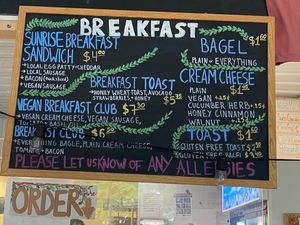 BREAKFAST
SUNRISE BREAKFAST
SANDWICH $4.00
• LOCAL EGG PATTY • CHEDDAR
• LOCAL SAUSAGE
• BACON
• VEGAN SAUSAGE
BREAKFAST TOAST
• HONEY WHEAT TOAST, AVOCADO
STRAWBERRIES, HONEY $5
VEGAN BREAKFAST CLUB
$7.50
• VEGAN CREAM CHEESE, VEGAN SAUSAGE,
BREAKFAST CLUB $6
• EVERYTHING BAGLE, PLAIN CREAM CHEESE,
TOMATO • BACON
BAGEL
$1
PLAIN • EVERYTHING
CREAM CHEESE
PLAIN $1
VEGAN
CUCUMBER HERB
HONEY CINNAMON
WALNUT
TOAST $1
GLUTEN FREE TOAST $2
GLUTEN FREE BAGLE $3
PLEASE LET US KNOW OF ANY ALLERGIES
ORDER